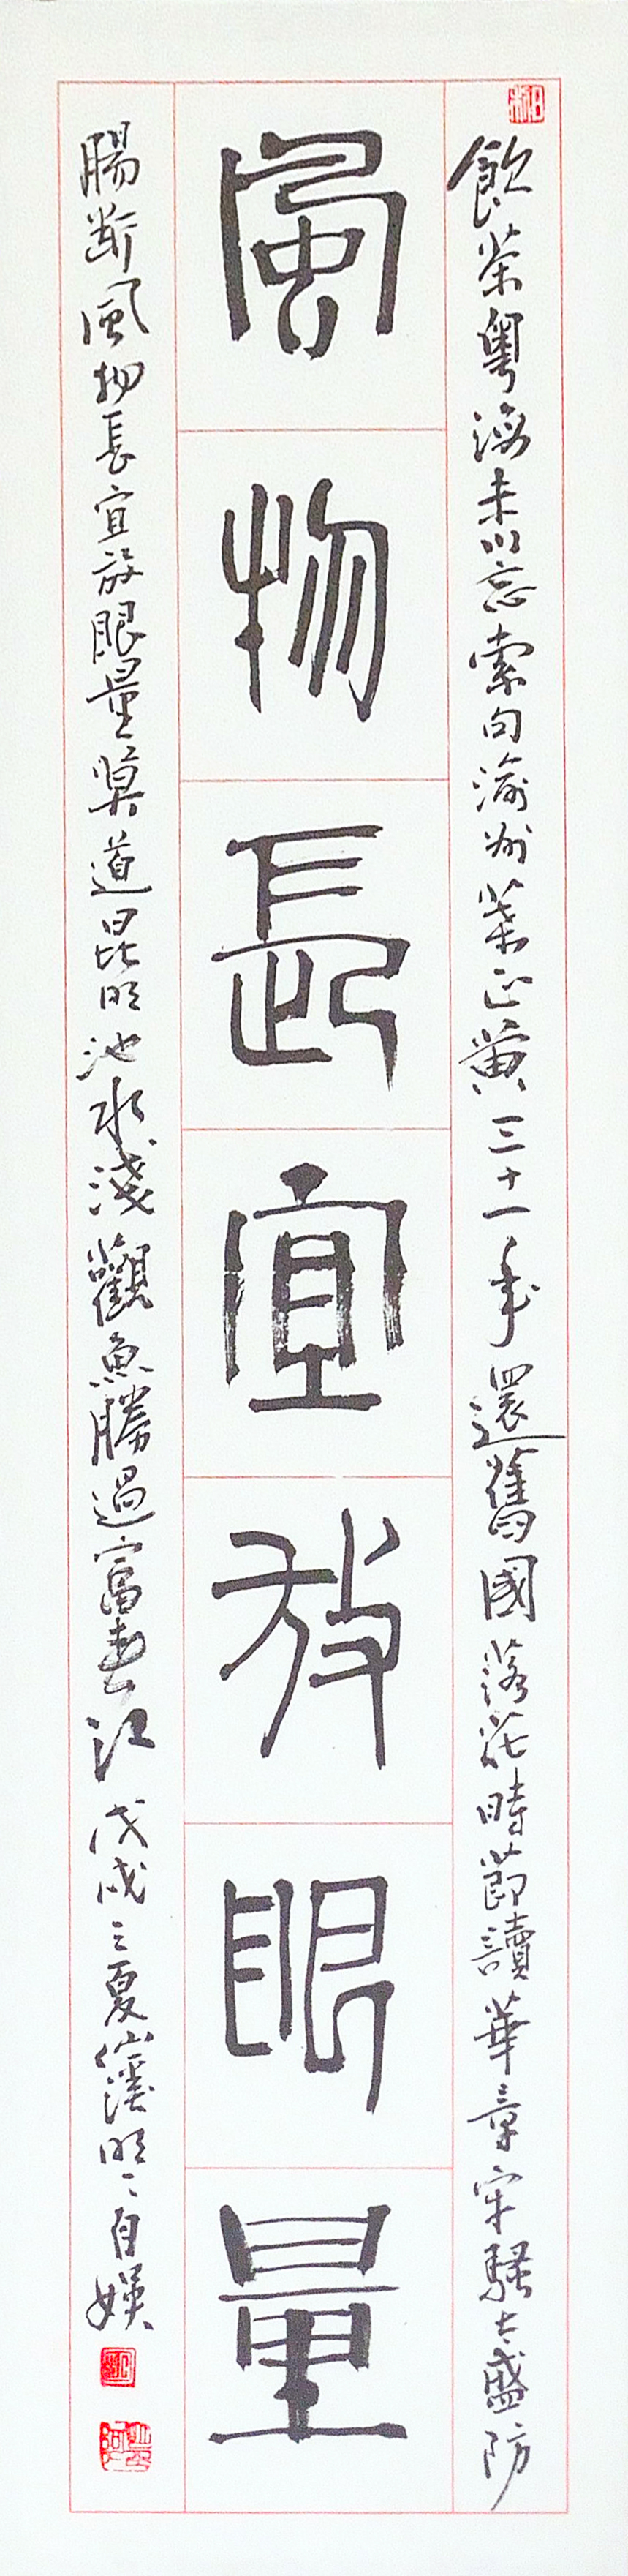 飲茶粵海未能忘索句渝州葉正黃三十一年還舊國落花時節讀華章牢騷太盛防
風物長宜放眼量
腸斷風物長宜放眼量莫道昆明池水淺觀魚勝過富春江戊戌之夏僊溪明明自娛